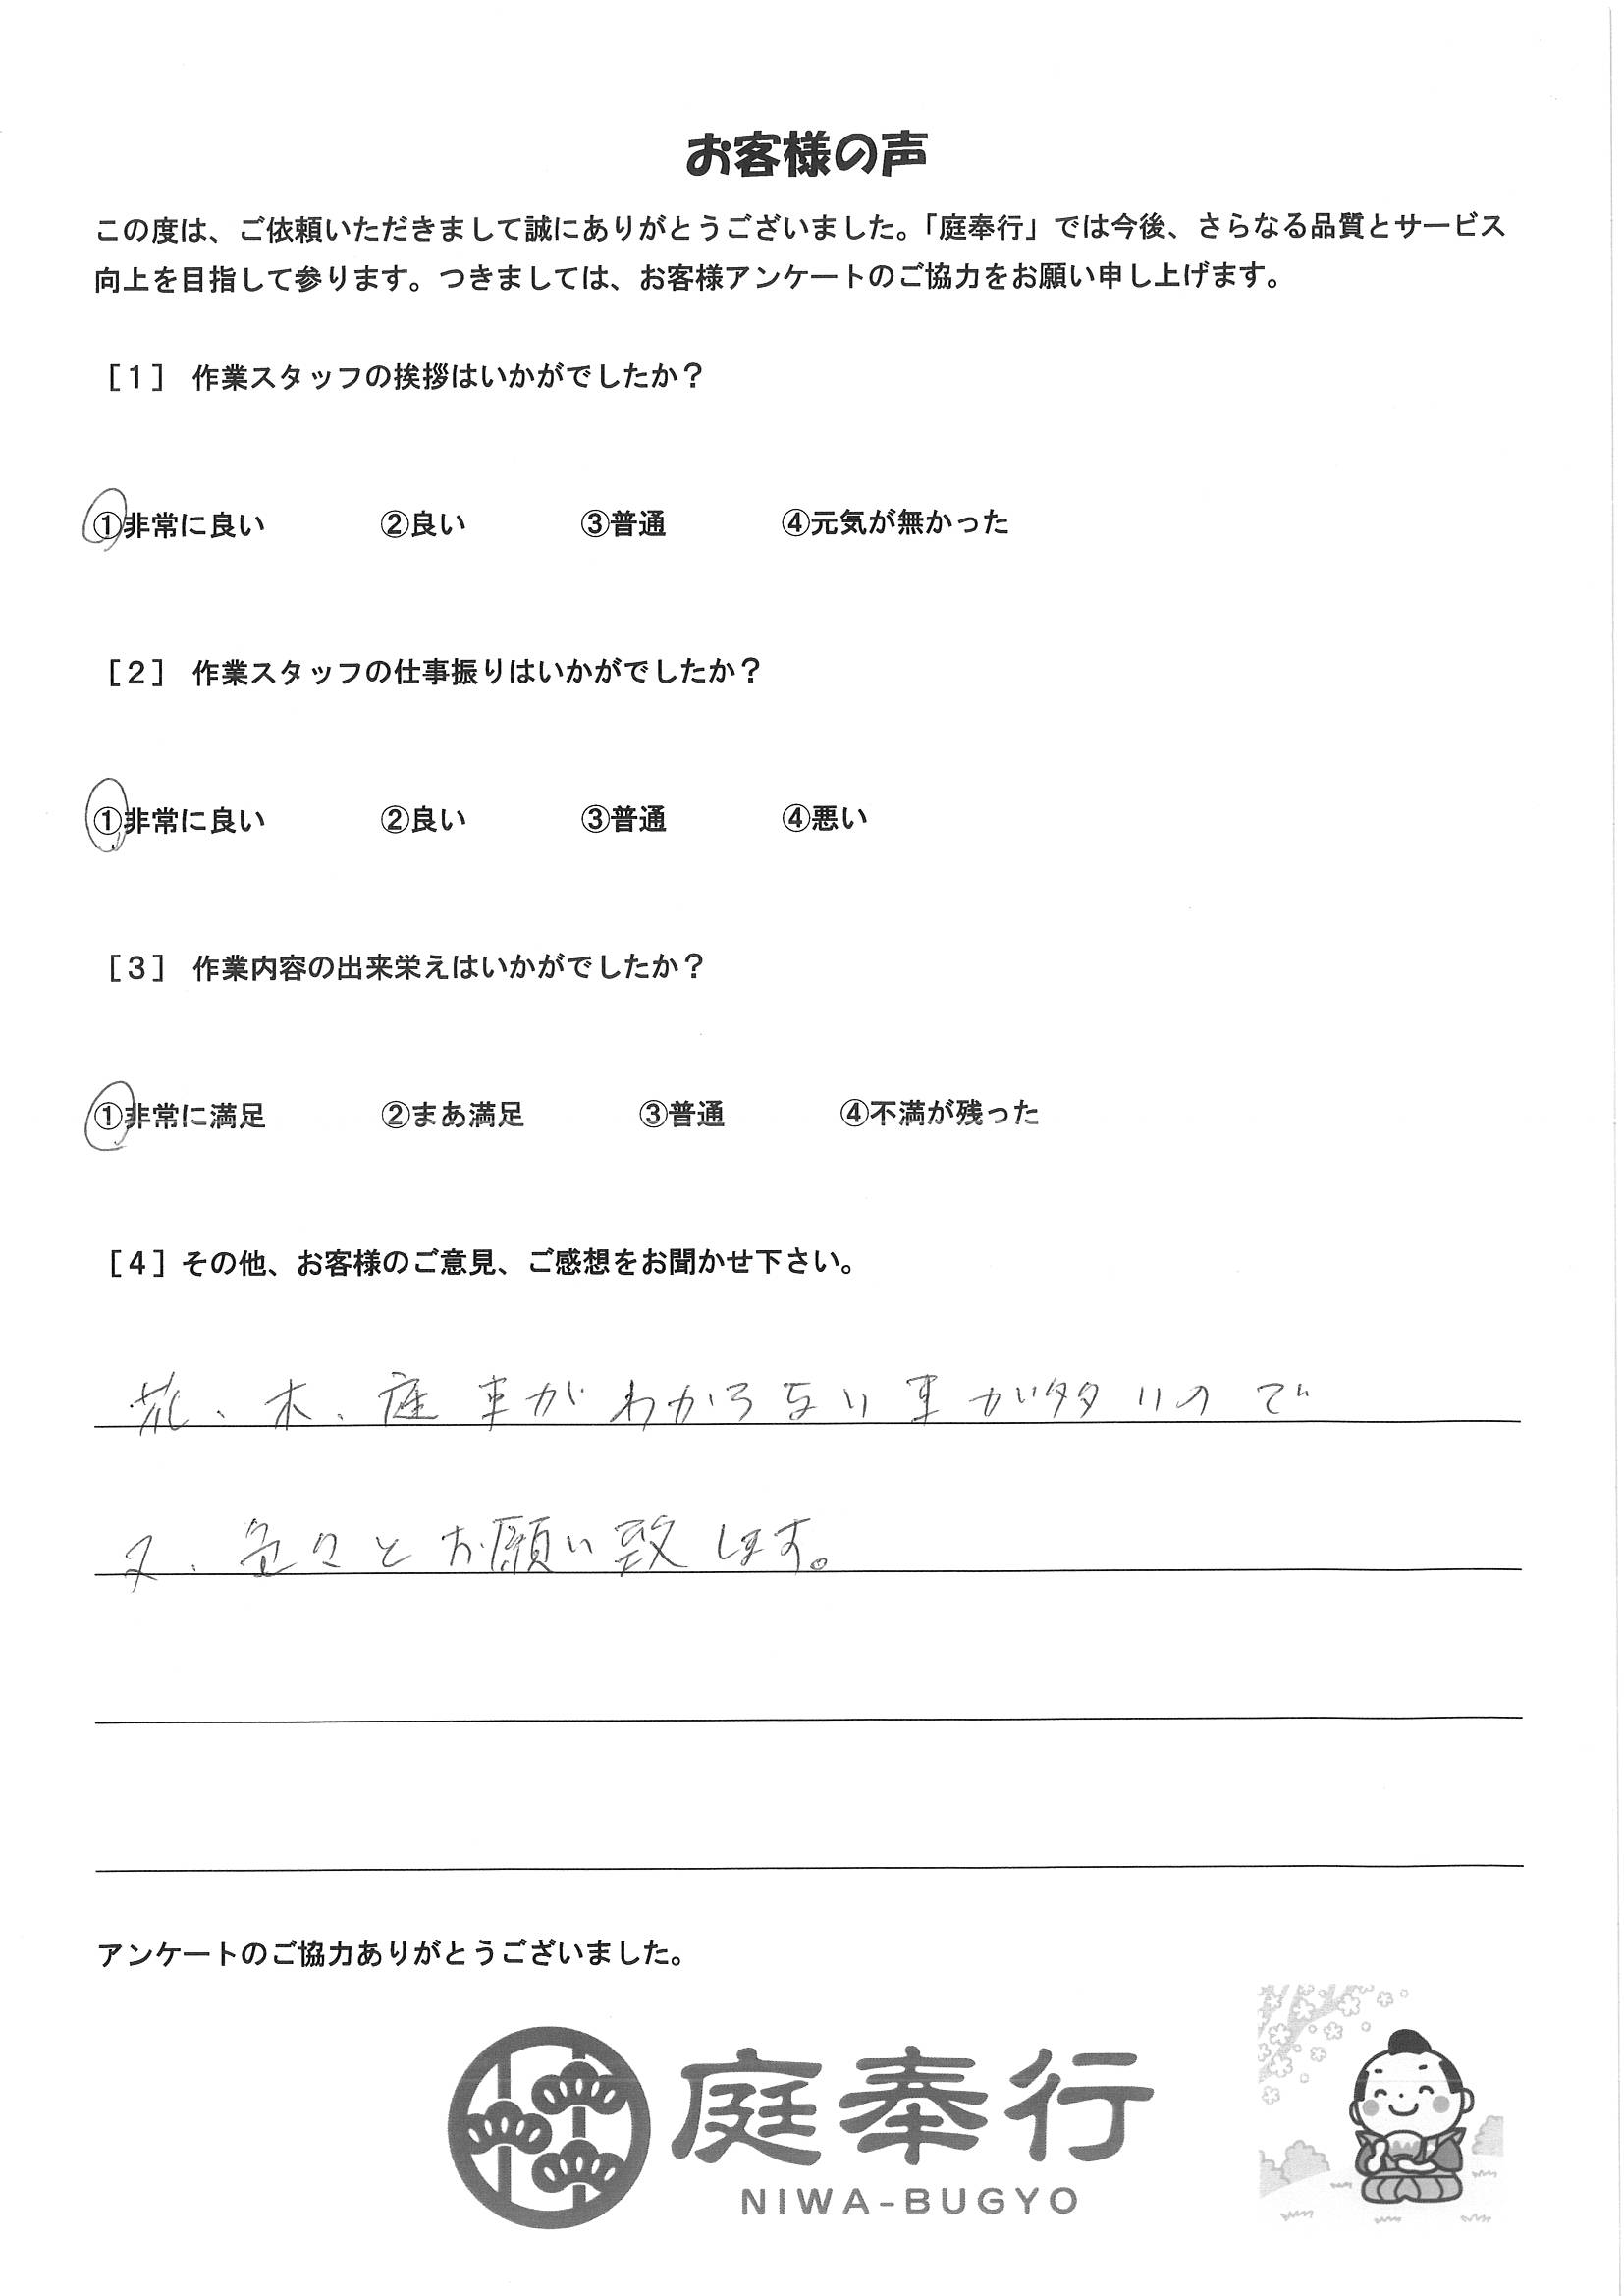 お客様の声
この度は、ご依頼いただきまして誠にありがとうございました。「庭奉行」では今後、さらなる品質とサービス
向上を目指して参ります。つきましては、お客様アンケートのご協力をお願い申し上げます。
［１］ 作業スタッフの挨拶はいかがでしたか？
①非常に良い ②良い ③普通 ④元気が無かった
［２］ 作業スタッフの仕事振りはいかがでしたか？
①非常に良い ②良い ③普通 ④悪い
［３］ 作業内容の出来栄えはいかがでしたか？
①非常に満足 ②まあ満足 ③普通 ④不満が残った
［４］その他、お客様のご意見、ご感想をお聞かせ下さい。
花、木、庭事がわからない事が多いので
又、色々とお願い致します。
アンケートのご協力ありがとうございました。
庭奉行
NIWA-BUGYO